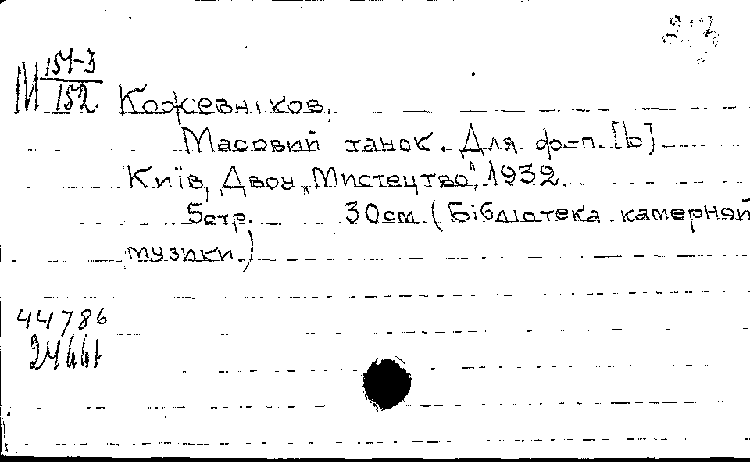 М 151-3
152
Кожевніков.
Масовий танок. Для ф-п. [b]
Київ, Двоу „Мистецтво", 1932.
5стр. 30см. (Бібліотека камерной
музики.)
44786